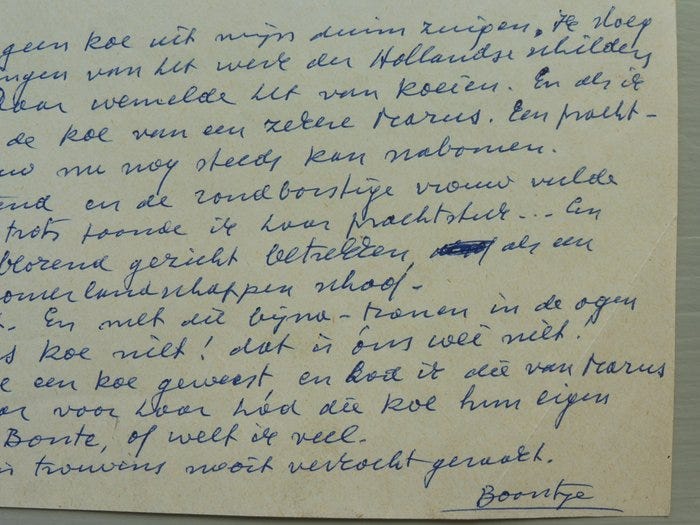 geen koe uit mijn duim zuigen. Ik sloeg
ingen van het werk der Hollandse schilders
daar wemelde het van koeien. En als ik
de koe van een zekere Marus. Een pracht-
nu nog steeds kan nabomen.
end en de rondborstige vrouw vulde
trots toonde ik haar prachtstuk... En
blozend gezicht betrekken, als een
omerlandschappen schoof.
En met die bijna-tranen in de ogen
s koe niet! dat is óns wei niet!
e een koe geweest en had ik die van Marus
ar voor haar hód die koe hun eigen
Bonte, of weet ik veel.
is trouwens nooit verkocht geraakt.
Boontje